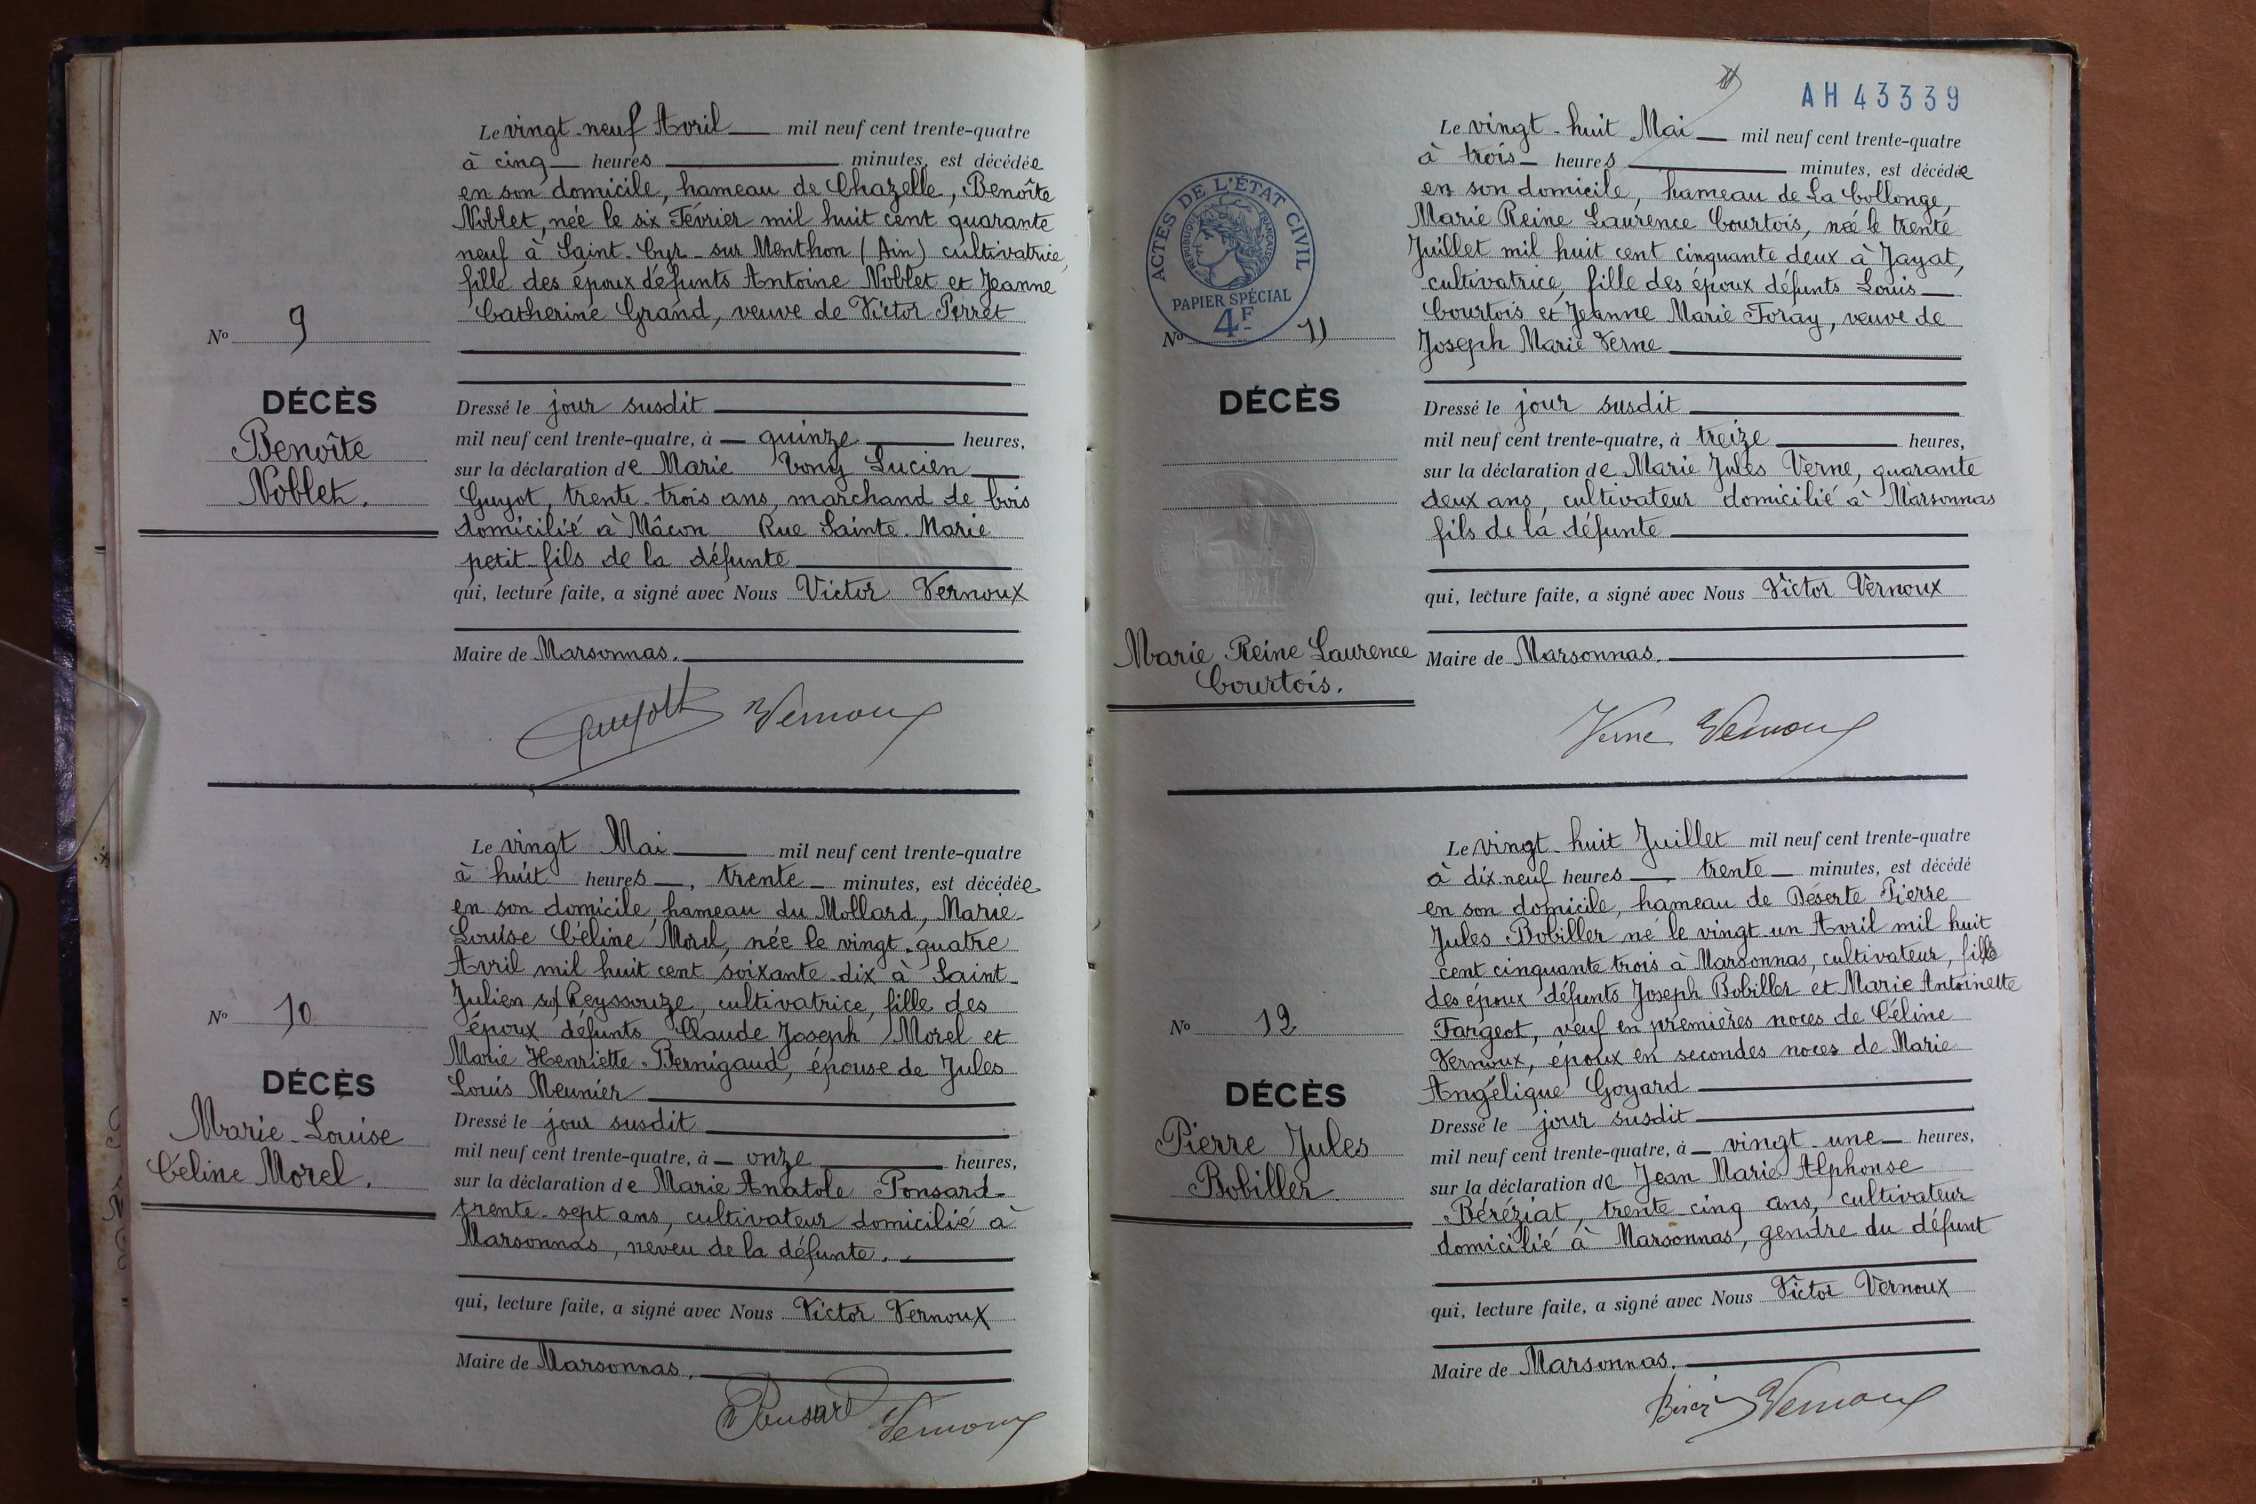 Le vingt-neuf Avril mil neuf cent trente-quatre
à cinq heures minutes, est décédée
en son domicile, hameau de Chazelle, Benoîte
Noblet, née le six Février mil huit cent quarante
neuf à Saint-Cyr-sur Menthon (Ain) cultivatrice,
fille des époux défunts Antoine Noblet et Jeanne
Catherine Grand, veuve de Victor Perret
No 9
DÉCÈS
Benoîte
Noblet.
Dressé le jour susdit
mil neuf cent trente-quatre, à quinze heures,
sur la déclaration de Marie Lucien
Guyot, trente-trois ans, marchand de bois
domicilié à Mâcon Rue Sainte-Marie
petit-fils de la défunte
qui, lecture faite, a signé avec Nous Victor Vernoux
Maire de Marsonnas.
Guyot Vernoux
Le vingt Mai mil neuf cent trente-quatre
à huit heures, trente minutes, est décédée
en son domicile, hameau du Mollard, Marie-
Louise Céline Morel, née le vingt-quatre
Avril mil huit cent soixante-dix à Saint-
Julien sur Reyssouze, cultivatrice, fille des
époux défunts Claude Joseph Morel et
Marie Henriette Bernigaud, épouse de Jules
Louis Meunier
No 10
DÉCÈS
Marie-Louise
Céline Morel.
Dressé le jour susdit
mil neuf cent trente-quatre, à onze heures,
sur la déclaration de Marie Anatole Ponsard
trente-sept ans, cultivateur domicilié à
Marsonnas, neveu de la défunte.
qui, lecture faite, a signé avec Nous Victor Vernoux
Maire de Marsonnas.
Ponsard Vernoux
AH 43339
Le vingt-huit Mai mil neuf cent trente-quatre
à trois heures minutes, est décédée
en son domicile, hameau de La Collonge,
Marie Reine Laurence Courtois, née le trente
Juillet mil huit cent cinquante deux à Jayat,
cultivatrice, fille des époux défunts Louis
Courtois et Jeanne Marie Foray, veuve de
Joseph Marie Verne
ACTES DE L'ÉTAT CIVIL
RÉPUBLIQUE FRANÇAISE
PAPIER SPÉCIAL
4F
No 11
DÉCÈS
Marie Reine Laurence
Courtois.
Dressé le jour susdit
mil neuf cent trente-quatre, à treize heures,
sur la déclaration de Marie Jules Verne, quarante
deux ans, cultivateur domicilié à Marsonnas
fils de la défunte
qui, lecture faite, a signé avec Nous Victor Vernoux
Maire de Marsonnas.
Verne Vernoux
Le vingt-huit Juillet mil neuf cent trente-quatre
à dix-neuf heures, trente minutes, est décédé
en son domicile, hameau de Déserte Pierre
Jules Bobiller né le vingt-un Avril mil huit
cent cinquante trois à Marsonnas, cultivateur, fils
des époux défunts Joseph Bobiller et Marie Antoinette
Fargeot, veuf en premières noces de Céline
Vernoux, époux en secondes noces de Marie
Angélique Goyard
No 12
DÉCÈS
Pierre Jules
Bobiller
Dressé le jour susdit
mil neuf cent trente-quatre, à vingt-une heures,
sur la déclaration de Jean Marie Alphonse
Béréziat, trente-cinq ans, cultivateur
domicilié à Marsonnas, gendre du défunt
qui, lecture faite, a signé avec Nous Victor Vernoux
Maire de Marsonnas.
Vernoux